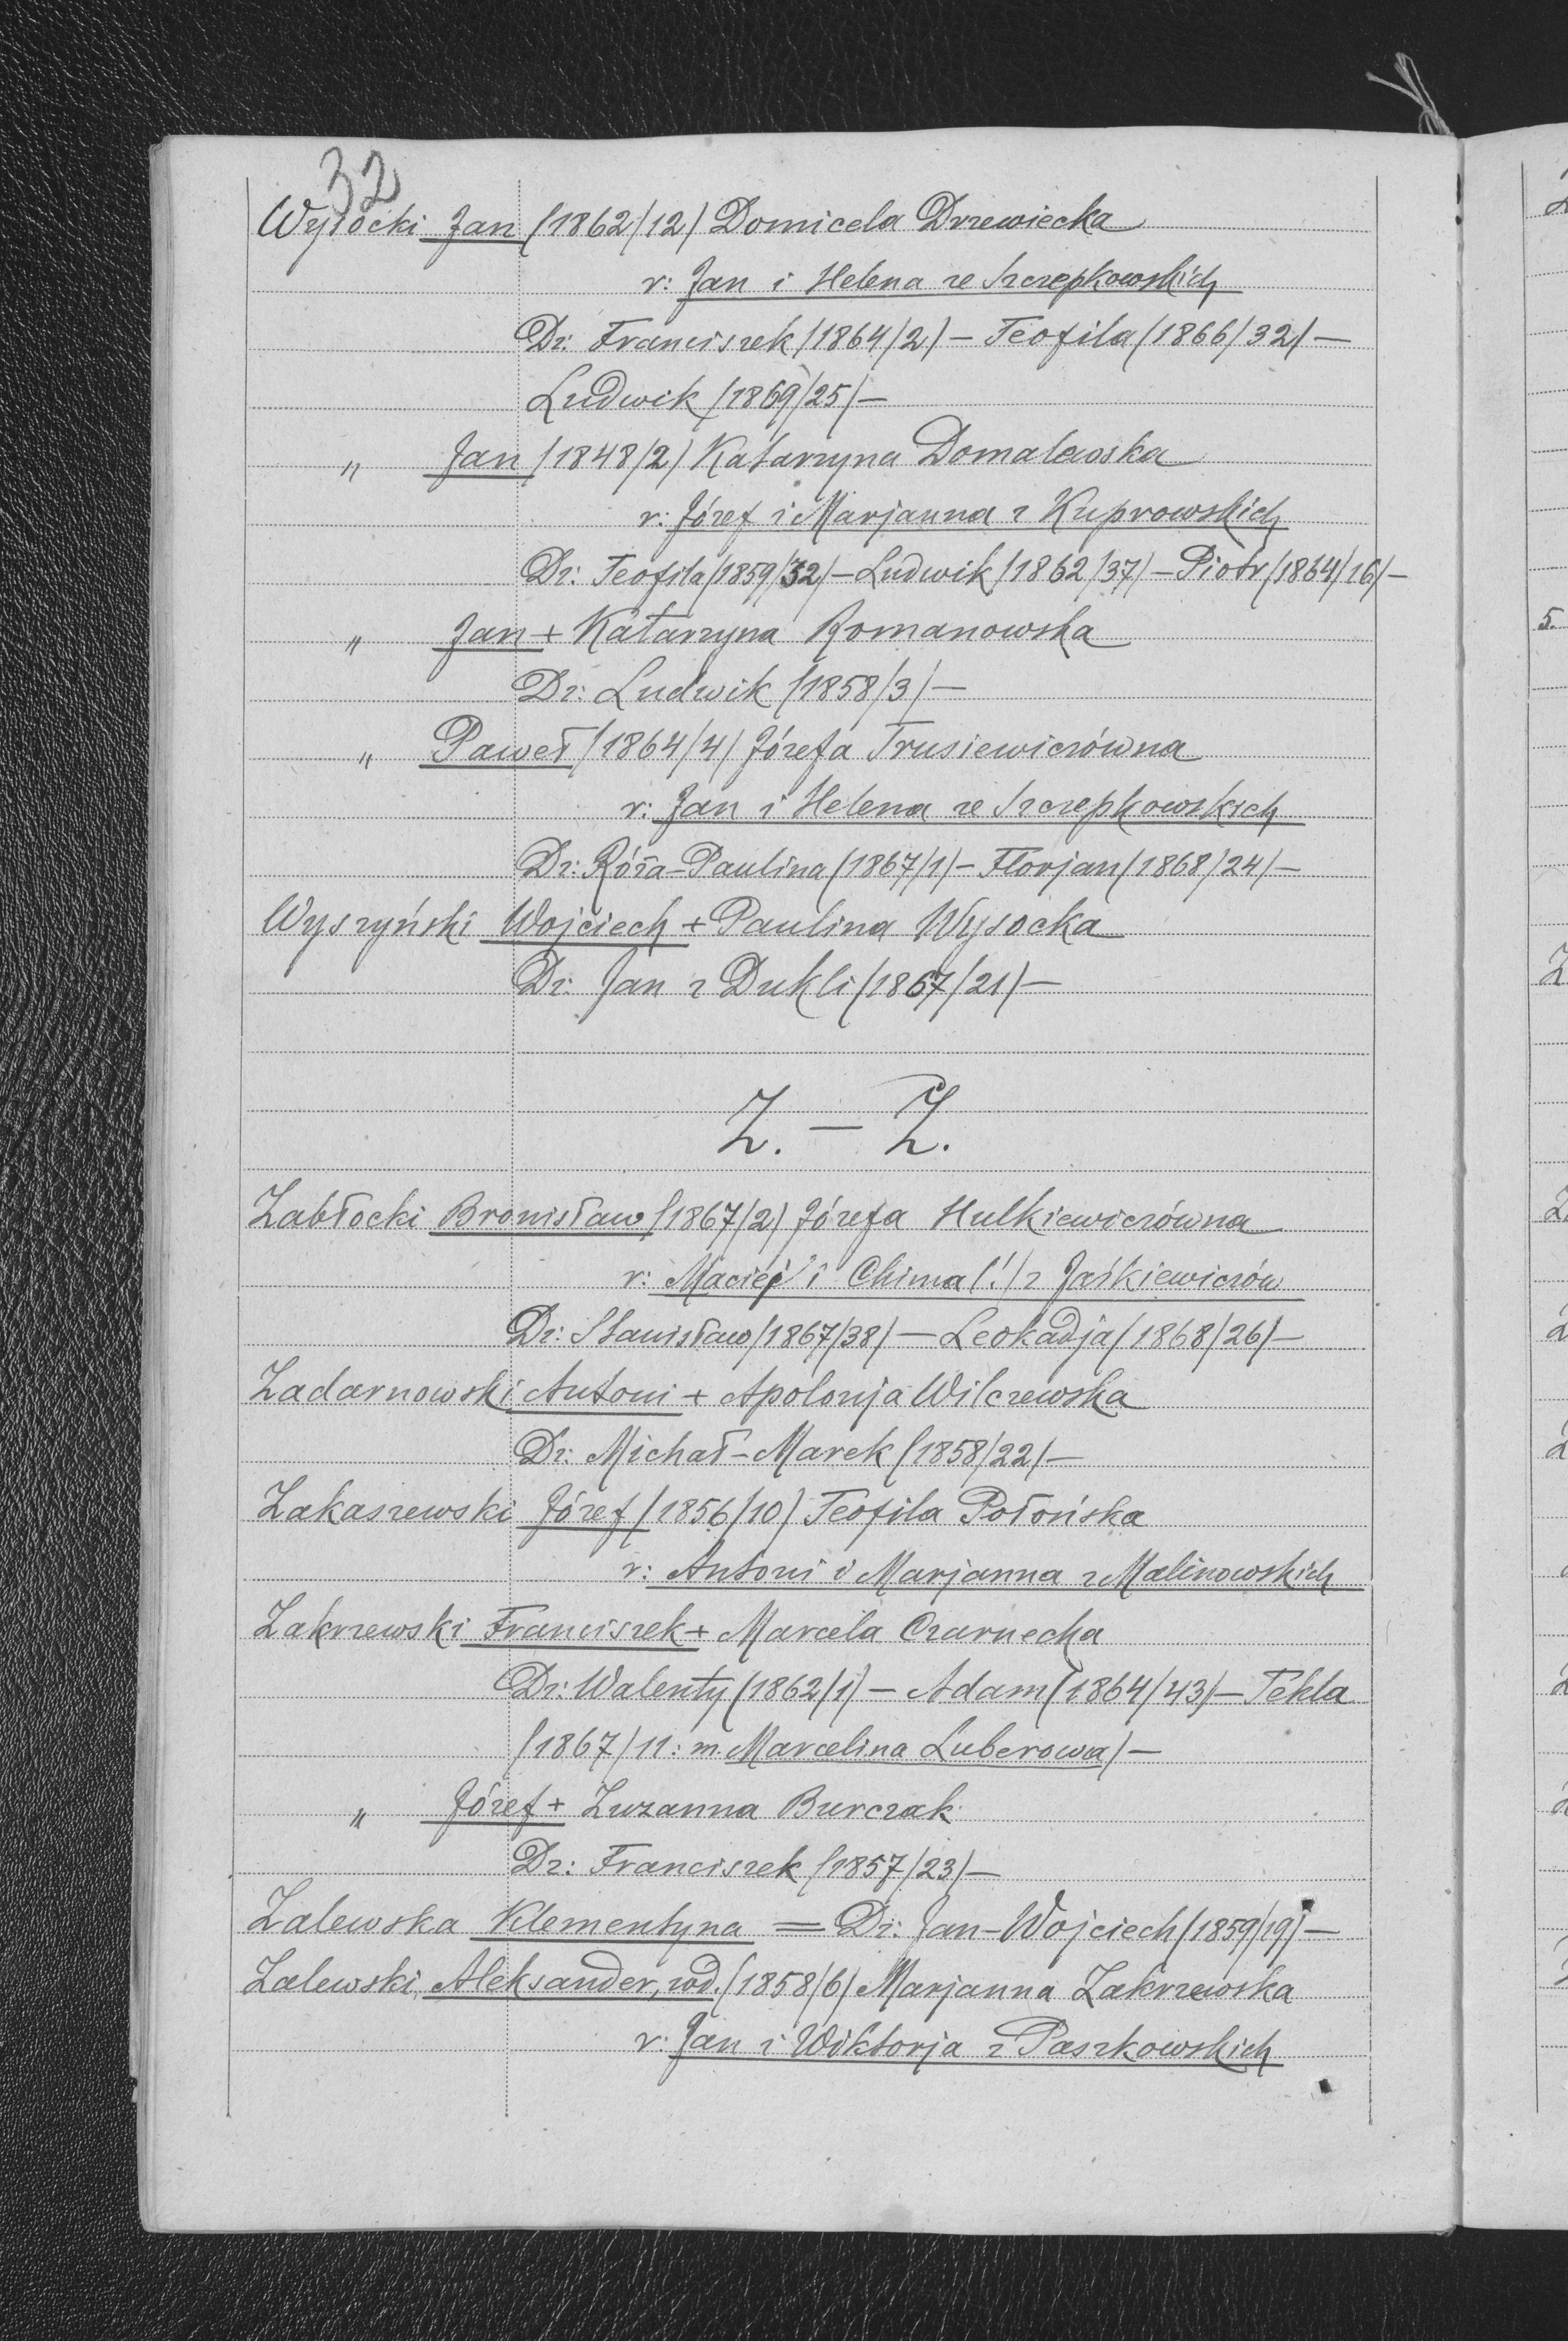 32
Wysocki Jan (1862/12) Domicela Drzewiecka
r: Jan i Helena ze Szczepkowskich
Dz: Franciszek (1864/2) — Teofila (1866/32) —
Ludwik (1869/25) —
„ Jan (1848/2) Katarzyna Domalewska
r: Józef i Marjanna z Kuprowskich
Dz: Teofila (1859/32) — Ludwik (1862/37) — Piotr (1864/16) —
„ Jan + Katarzyna Romanowska
Dz: Ludwik (1858/3) —
„ Paweł (1864/4) Józefa Trusiewiczówna
r: Jan i Helena ze Szczepkowskich
Dz: Róża-Paulina (1867/1) — Florjan (1868/24) —
Wyszyński Wojciech + Paulina Wysocka
Dz: Jan z Dukli (1867/21) —
Z. — Ż.
Zabłocki Bronisław (1867/2) Józefa Hulkiewiczówna
r: Maciej i Chima (!) z Jaśkiewiczów
Dz: Stanisław (1867/38) — Leokadja (1868/26) —
Zadarnowski Antoni + Apolonja Wilczewska
Dz: Michał-Marek (1858/22) —
Zakaszewski Józef (1856/10) Teofila Połońska
r: Antoni i Marjanna z Malinowskich
Zakrzewski Franciszek + Marcela Czarnecka
Dz: Walenty (1862/1) — Adam (1864/43) — Tekla
(1867/11: m. Marcelina Luberowa) —
„ Józef + Zuzanna Burczak
Dz: Franciszek (1857/23) —
Zalewska Klementyna = Dz: Jan-Wojciech (1859/19) —
Zalewski Aleksander, wd. (1858/6) Marjanna Zakrzewska
r: Jan i Wiktorja z Paszkowskich